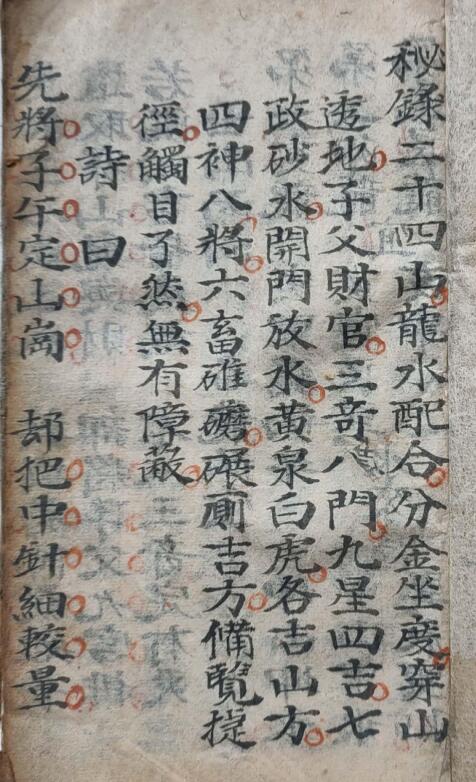 秘錄二十四山龍水配合分金坐度穿山
透地子父財官三奇八門九星四吉七
政砂水開門放水黃泉白虎各吉山方
四神八將六畜碓磨碾廁吉方備覽捷
徑觸目了然無有障蔽
詩曰
先將子午定山崗 却把中針細較量